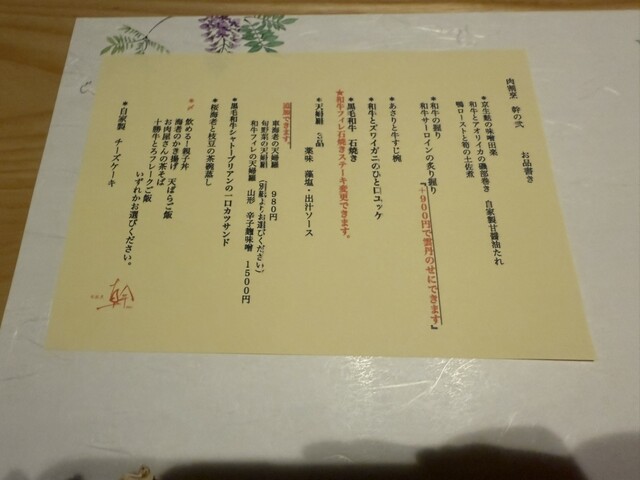 肉割烹 幹の弐 お品書き
*京生麩の味噌田楽
和牛とアオリイカの磯部巻き 自家製甘醤油たれ
鴨ローストと筍の土佐煮
*和牛の握り
和牛サーロインの炙り握り『+900円で雲丹のせにできます』
*あさりと牛すじ椀
*和牛とズワイガニのひと口ユッケ
*黒毛和牛 石焼き
★和牛フィレ石焼きステーキ変更できます。
*天婦羅 5品 薬味 藻塩・出汁ソース
追加できます。
車海老の天婦羅 980円
旬野菜の天婦羅(別紙よりお選びください)
和牛フィレの天婦羅 山形 辛子麹味噌 1500円
*黒毛和牛シャトーブリアンの一口カツサンド
*桜海老と枝豆の茶碗蒸し
*〆
飲める!親子丼
海老のかき揚げ 天ばらご飯
お肉屋さんの茶そば
十勝牛とろフレークご飯
いずれかお選びください。
*自家製 チーズケーキ